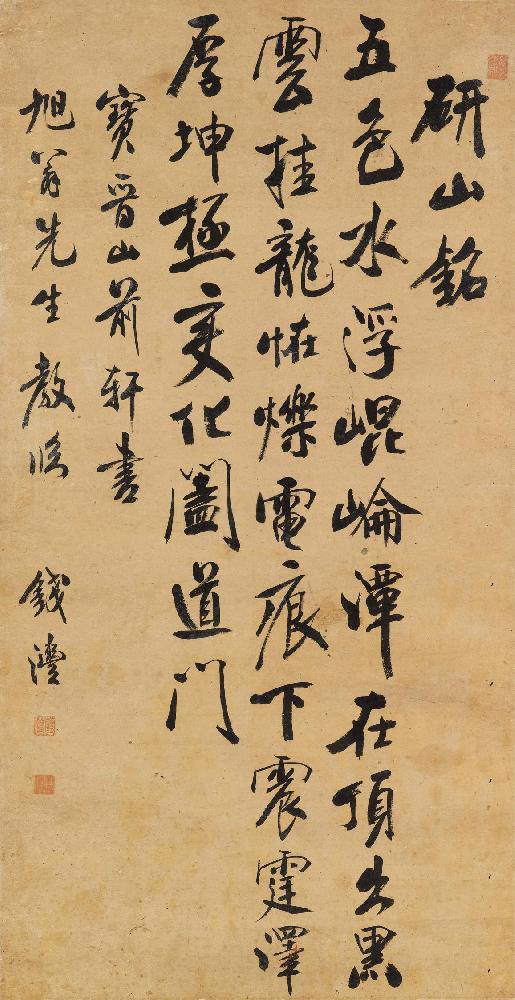 研山銘
五色水浮崐崘潭在頂出黑
雲挂龍恠爍電痕下震霆澤
厚坤極变化闔道門
寶晋山前軒書
旭翁先生教临
錢灃